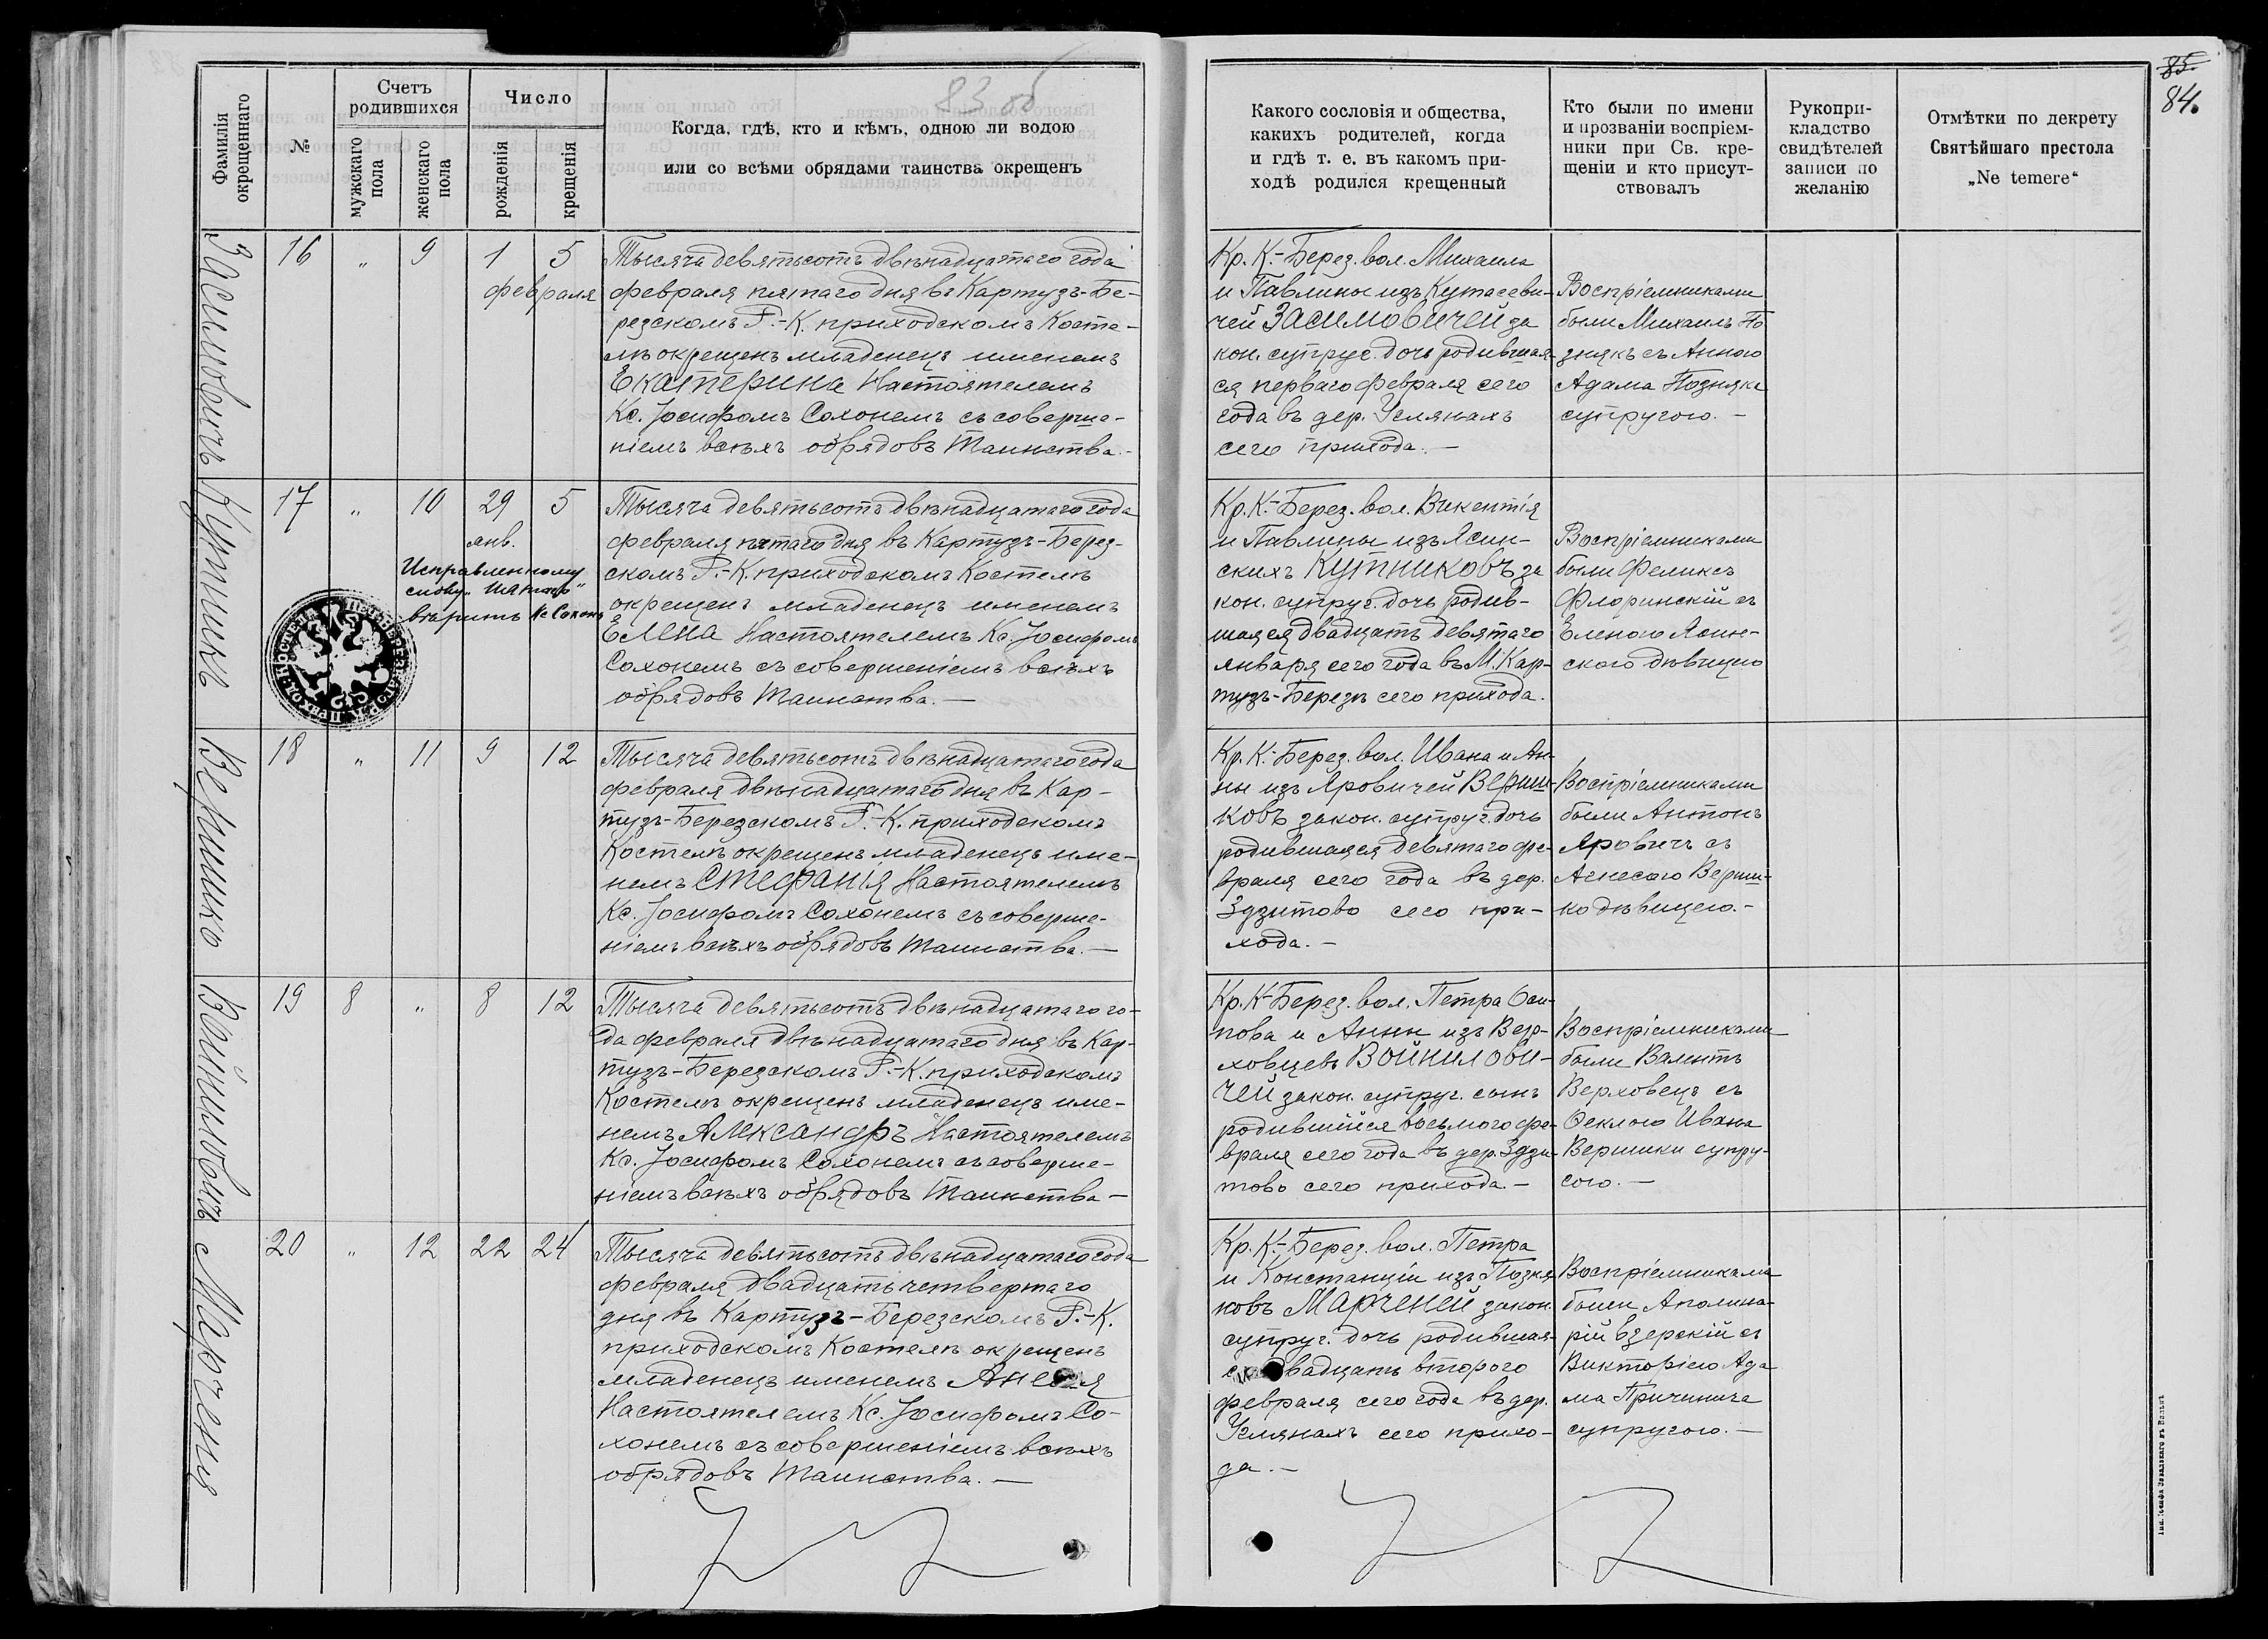 83 об
Фамилія окрещеннаго
№
Счетъ родившихся
мужскаго пола
женскаго пола
Число
рожденія
крещенія
Когда, гдѣ, кто и кѣмъ, одною ли водою
или со всѣми обрядами таинства окрещенъ
Засимовичъ
16 „ 9 1 5
февраля
Тысяча девятьсотъ двѣнадцатаго года
февраля пятаго дня въ Картузъ-Бе-
резскомъ Р.-К. приходскомъ Косте-
лѣ окрещенъ младенецъ именемъ
Екатерина Настоятелемъ
Кс. Іосифомъ Сохонемъ съ соверше-
ніемъ всѣхъ обрядовъ Таинства.-
Кутникъ
17 „ 10 29 5
янв.
Исправленному
слову „пятаго"
вѣрить Кс Сохонь
Тысяча девятьсотъ двѣнадцатаго года
февраля пятаго дня въ Картузъ-Берез-
скомъ Р.-К. приходскомъ Костелѣ
окрещенъ младенецъ именемъ
Елена Настоятелемъ Кс. Іосифомъ
Сохонемъ съ совершеніемъ всѣхъ
обрядовъ Таинства. —
Вершико
18 „ 11 9 12
Тысяча девятьсотъ двѣнадцатаго года
февраля двѣнадцатаго дня въ Кар-
тузъ-Березскомъ Р.-К. приходскомъ
Костелѣ окрещенъ младенецъ име-
немъ Стефанія Настоятелемъ
Кс. Іосифомъ Сохонемъ съ соверше-
ніемъ всѣхъ обрядовъ Таинства. —
Войниловичъ
19 8 „ 8 12
Тысяча девятьсотъ двѣнадцатаго го-
да февраля двѣнадцатаго дня въ Кар-
тузъ-Березскомъ Р.-К. приходскомъ
Костелѣ окрещенъ младенецъ име-
немъ Александръ Настоятелемъ
Кс. Іосифомъ Сохонемъ съ соверше-
ніемъ всѣхъ обрядовъ Таинства —
Марченя
20 „ 12 22 24
Тысяча девятьсотъ двѣнадцатаго года
февраля двадцать четвертаго
дня въ Картузъ-Березскомъ Р.-К.
приходскомъ Костелѣ окрещенъ
младенецъ именемъ
Настоятелемъ Кс. Іосифомъ Со-
хонемъ съ совершеніемъ всѣхъ
обрядовъ Таинства. —
85.
84.
Какого сословія и общества,
какихъ родителей, когда
и гдѣ т. е. въ какомъ при-
ходѣ родился крещенный
Кто были по имени
и прозваніи воспріем-
ники при Св. кре-
щеніи и кто присут-
ствовалъ
Рукопри-
кладство
свидѣтелей
записи по
желанію
Отмѣтки по декрету
Святѣйшаго престола
„Ne temere“
Кр. К.-Берез. вол. Михаила
и Павлины изъ Кутасеви-
чей Засимовичей за
кон. супруг. дочь родившая-
ся перваго февраля сего
года въ дер. Углянахъ
сего прихода. —
Воспріемниками
были Михаилъ По
знякъ съ Анною
Адама Позняка
супругою. —
Кр. К.-Берез. вол. Викентія
и Павлины изъ Ясин-
скихъ Кутниковъ за
кон. супруг. дочь родив-
шаяся двадцать девятаго
января сего года въ М. Кар-
тузъ-Березѣ сего прихода.
Воспріемниками
были Феликсъ
Флоринскій съ
Еленою Ясин-
ского дѣвицею
Кр. К.-Берез. вол. Ивана и Ан-
ны изъ Яровичей Верши-
ковъ закон. супруг. дочь
родившаяся девятаго фе-
враля сего года въ дер.
Здзитово сего при-
хода. —
Воспріемниками
были Антонъ
Яровичъ съ
Агнесою Верши-
ко дѣвицею. -
Кр. К-Берез. вол. Петра Оси-
пова и Анны изъ Вер-
ховцевъ Войнилови-
чей закон. супруг. сынъ
родившійся восьмого фе-
враля сего года въ дер. Здзи-
тово сего прихода. —
Воспріемниками
были Валентъ
Верховецъ съ
Ѳеклою Ивана
Вершики супру-
гою. —
Кр. К.-Берез. вол. Петра
и Констанціи изъ Позня
ковъ Марченей закон.
супруг. дочь родившая-
ся двадцать второго
февраля сего года въ дер.
Углянахъ сего прихо-
да. —
Воспріемниками
были Аполина-
рій съ
Викторіею Ада
ма Причинича
супругою. —